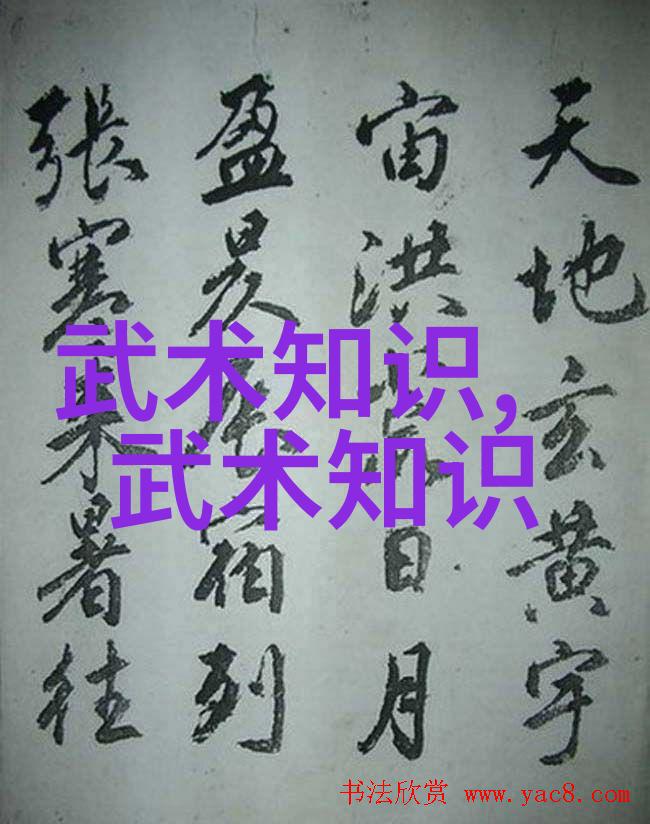 天地玄黄宇
宙洪荒日月
盈昃辰宿列
張寒来暑往
武术知识,
武术知识
书法欣赏 www.yac8.com